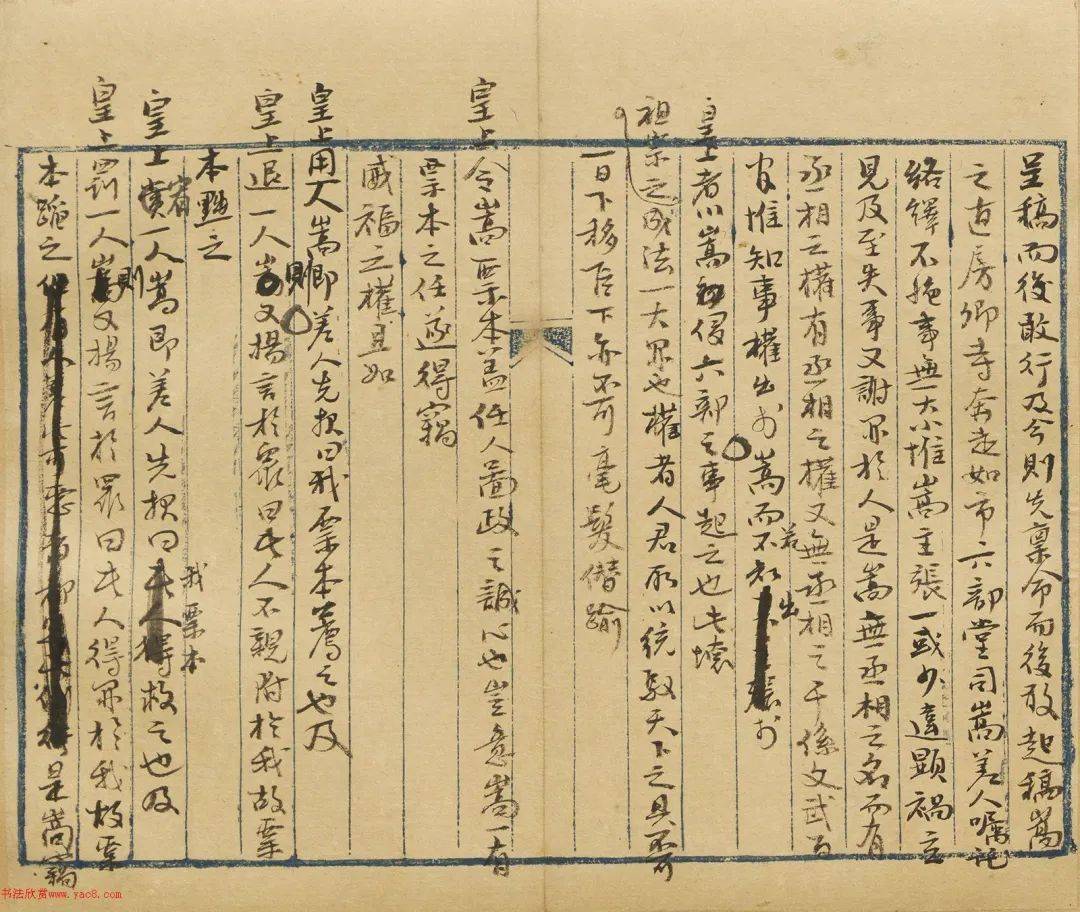 呈稿而後敢行及今則先稟命而後敢起稿嵩
之直房卿寺奔走如市六部堂司嵩差人囑託
絡繹不絕事無大小惟嵩主張一或少違顯禍立
見及至失事又謝罪於人是嵩無丞相之名而有
丞相之權有丞相之權又無丞相之干係文武百
官惟知事權出於嵩而不知出於
皇上者以嵩假六部之事起之也此壞
祖宗之成法一大罪也權者人君所以統馭天下之具不可
一日下移臣下亦不可毫髮僭踰
皇上令嵩票本蓋任人圖政之誠心也豈意嵩一有
票本之任遂得竊
威福之權且如
皇上用人嵩即差人先報曰我票本薦之也及
皇上退一人嵩又揚言於眾曰此人不親附於我故票
本黜之
皇上宥一人嵩即差人先報曰我票本救之也及
皇上罰一人嵩則又揚言於眾曰此人得罪於我故票
本 之 是嵩竊
书法欣赏www.yac8.com